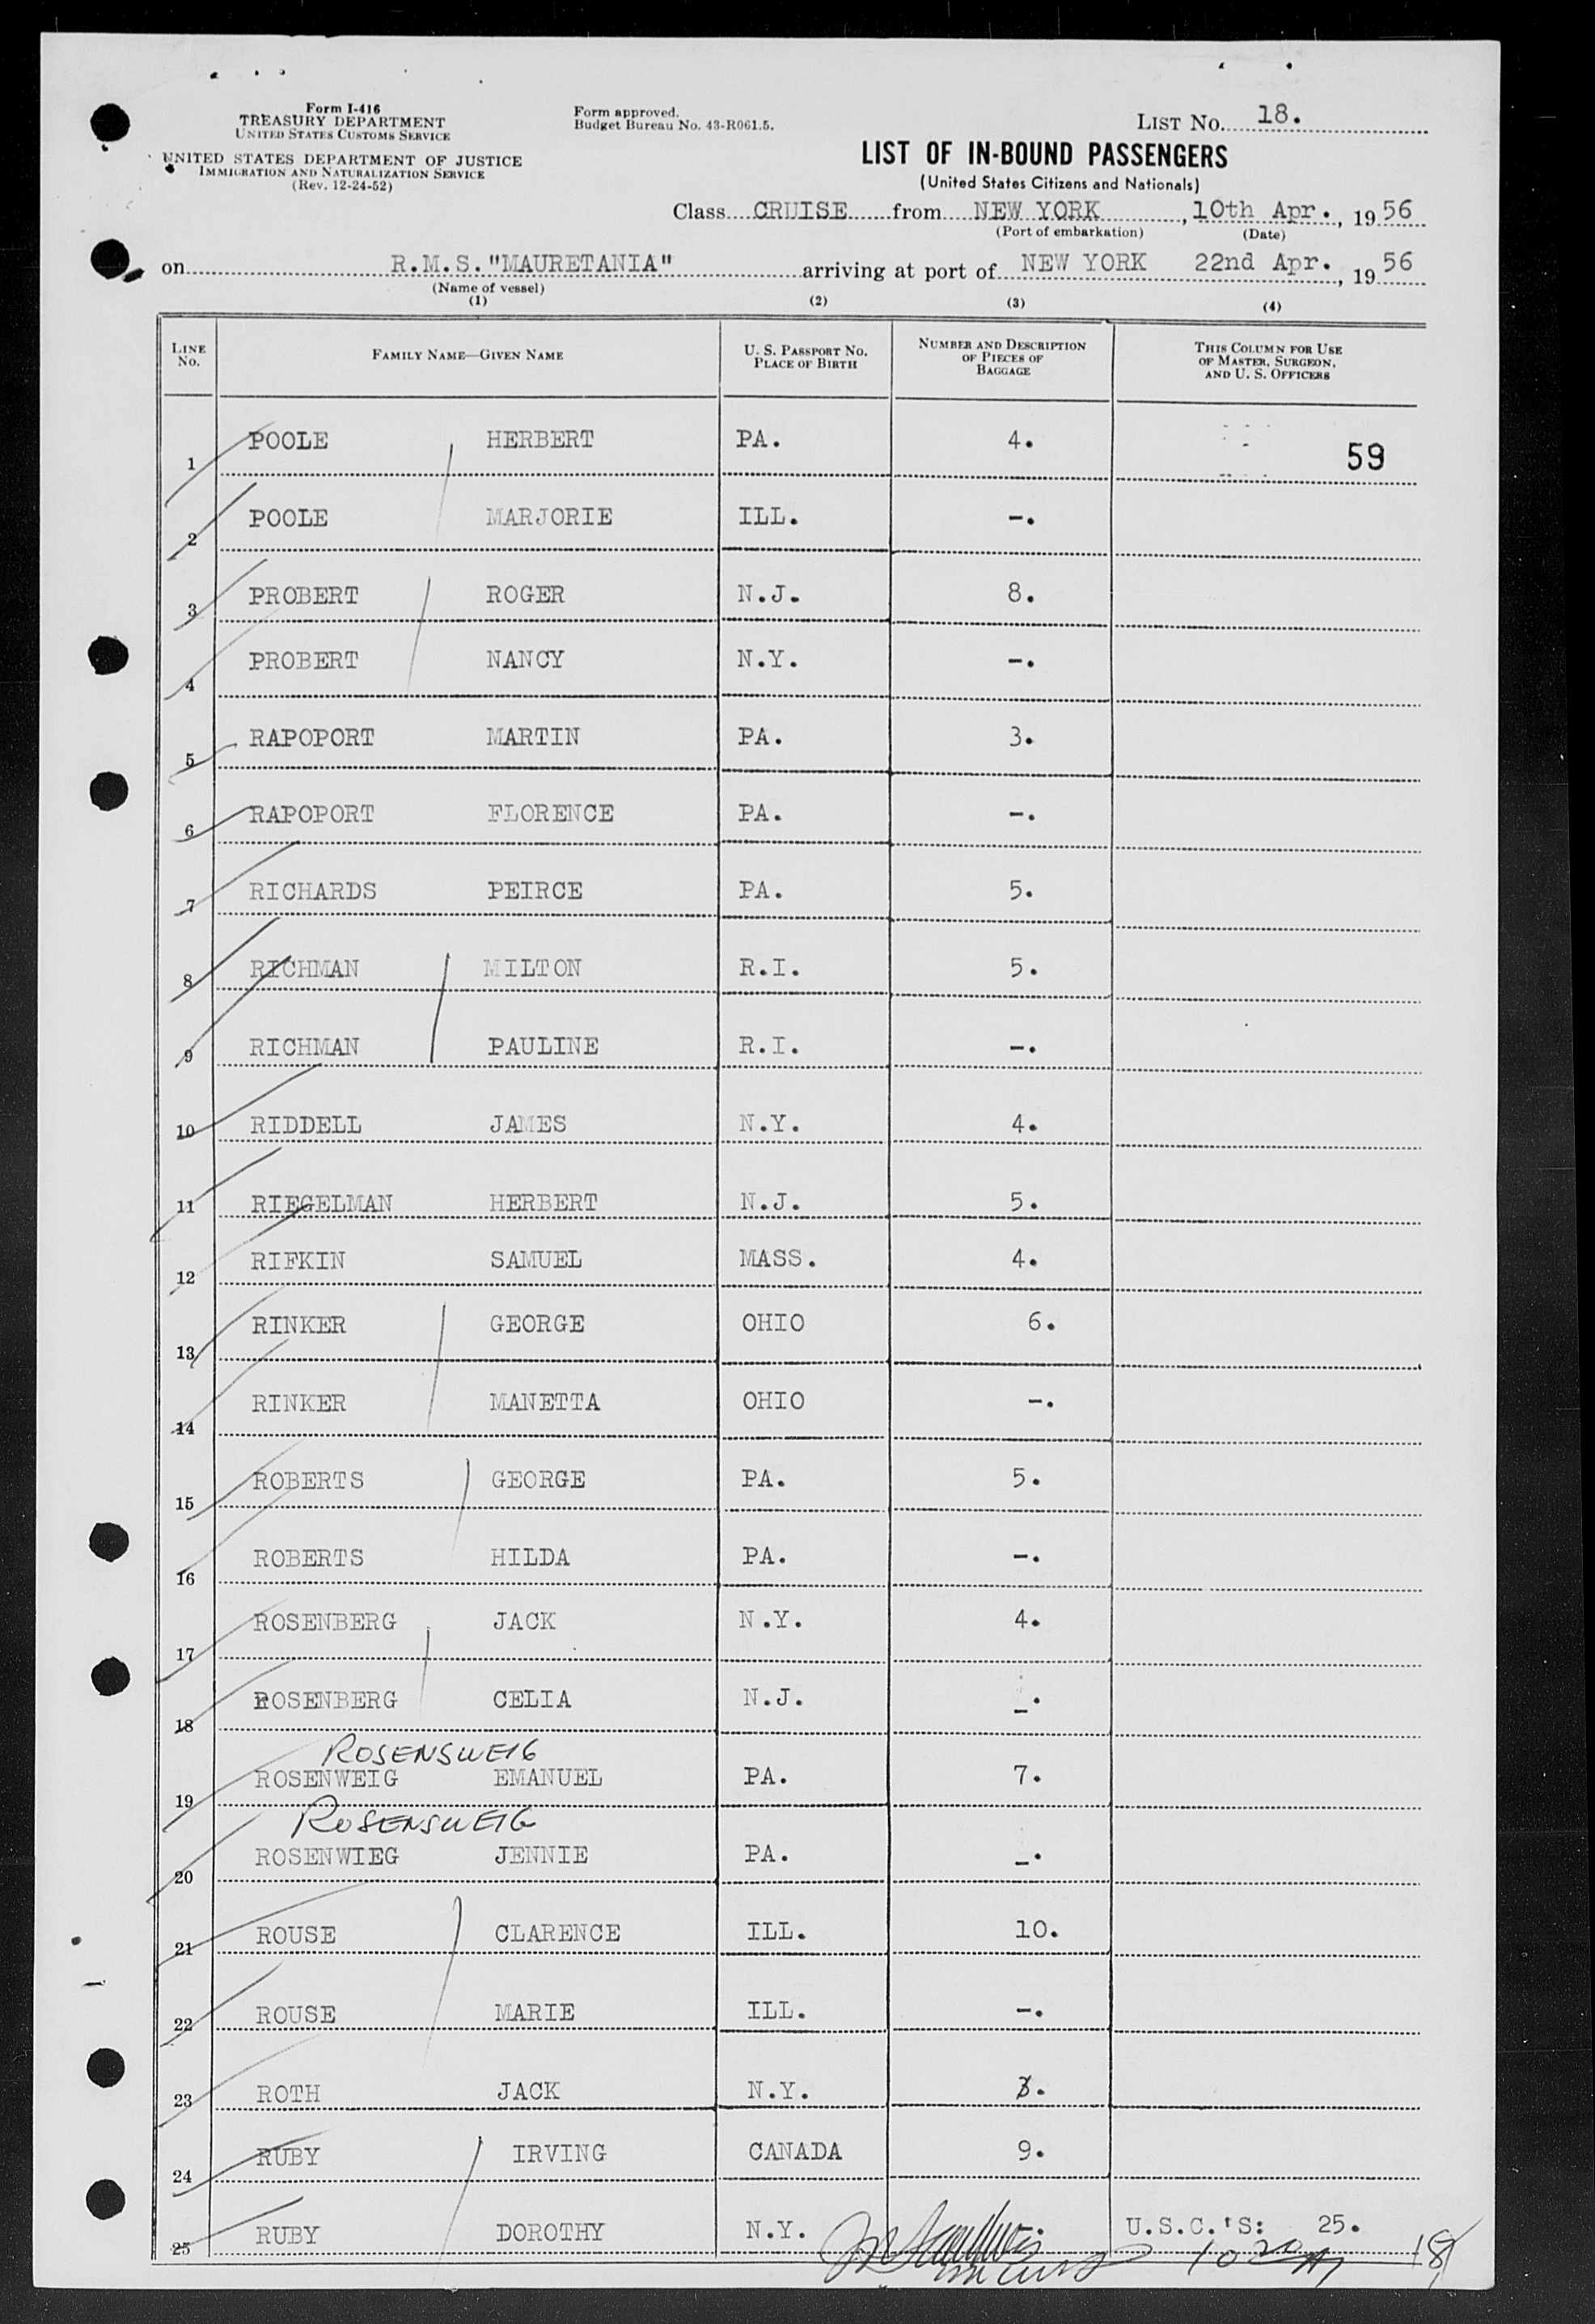 Form I-416
TREASURY DEPARTMENT
UNITED STATES CUSTOMS SERVICE
UNITED STATES DEPARTMENT OF JUSTICE
IMMIGRATION AND NATURALIZATION SERVICE
(Rev. 12-24-52)
Form approved.
Budget Bureau No. 43-R061.5.
LIST NO. 18.
LIST OF IN-BOUND PASSENGERS
(United States Citizens and Nationals)
Class CRUISE from NEW YORK, 10th Apr., 1956
(Port of embarkation) (Date)
on R.M.S. "MAURETANIA" arriving at port of NEW YORK 22nd Apr., 1956
(Name of vessel)
(1) (2) (3) (4)
LINE NO. FAMILY NAME—GIVEN NAME U. S. PASSPORT NO. PLACE OF BIRTH NUMBER AND DESCRIPTION OF PIECES OF BAGGAGE THIS COLUMN FOR USE OF MASTER, SURGEON, AND U. S. OFFICERS
1 POOLE HERBERT PA. 4. 59
2 POOLE MARJORIE ILL. -.
3 PROBERT ROGER N.J. 8.
4 PROBERT NANCY N.Y. -.
5 RAPOPORT MARTIN PA. 3.
6 RAPOPORT FLORENCE PA. -.
7 RICHARDS PEIRCE PA. 5.
8 RICHMAN MILTON R.I. 5.
9 RICHMAN PAULINE R.I. -.
10 RIDDELL JAMES N.Y. 4.
11 RIEGELMAN HERBERT N.J. 5.
12 RIFKIN SAMUEL MASS. 4.
13 RINKER GEORGE OHIO 6.
14 RINKER MANETTA OHIO -.
15 ROBERTS GEORGE PA. 5.
16 ROBERTS HILDA PA. -.
17 ROSENBERG JACK N.Y. 4.
18 ROSENBERG CELIA N.J. -.
ROSENSWEIG
19 ROSENWEIG EMANUEL PA. 7.
ROSENSWEIG
20 ROSENWIEG JENNIE PA. -.
21 ROUSE CLARENCE ILL. 10.
22 ROUSE MARIE ILL. -.
23 ROTH JACK N.Y. 3.
24 RUBY IRVING CANADA 9.
25 RUBY DOROTHY N.Y. -. U.S.C.'S: 25.
18